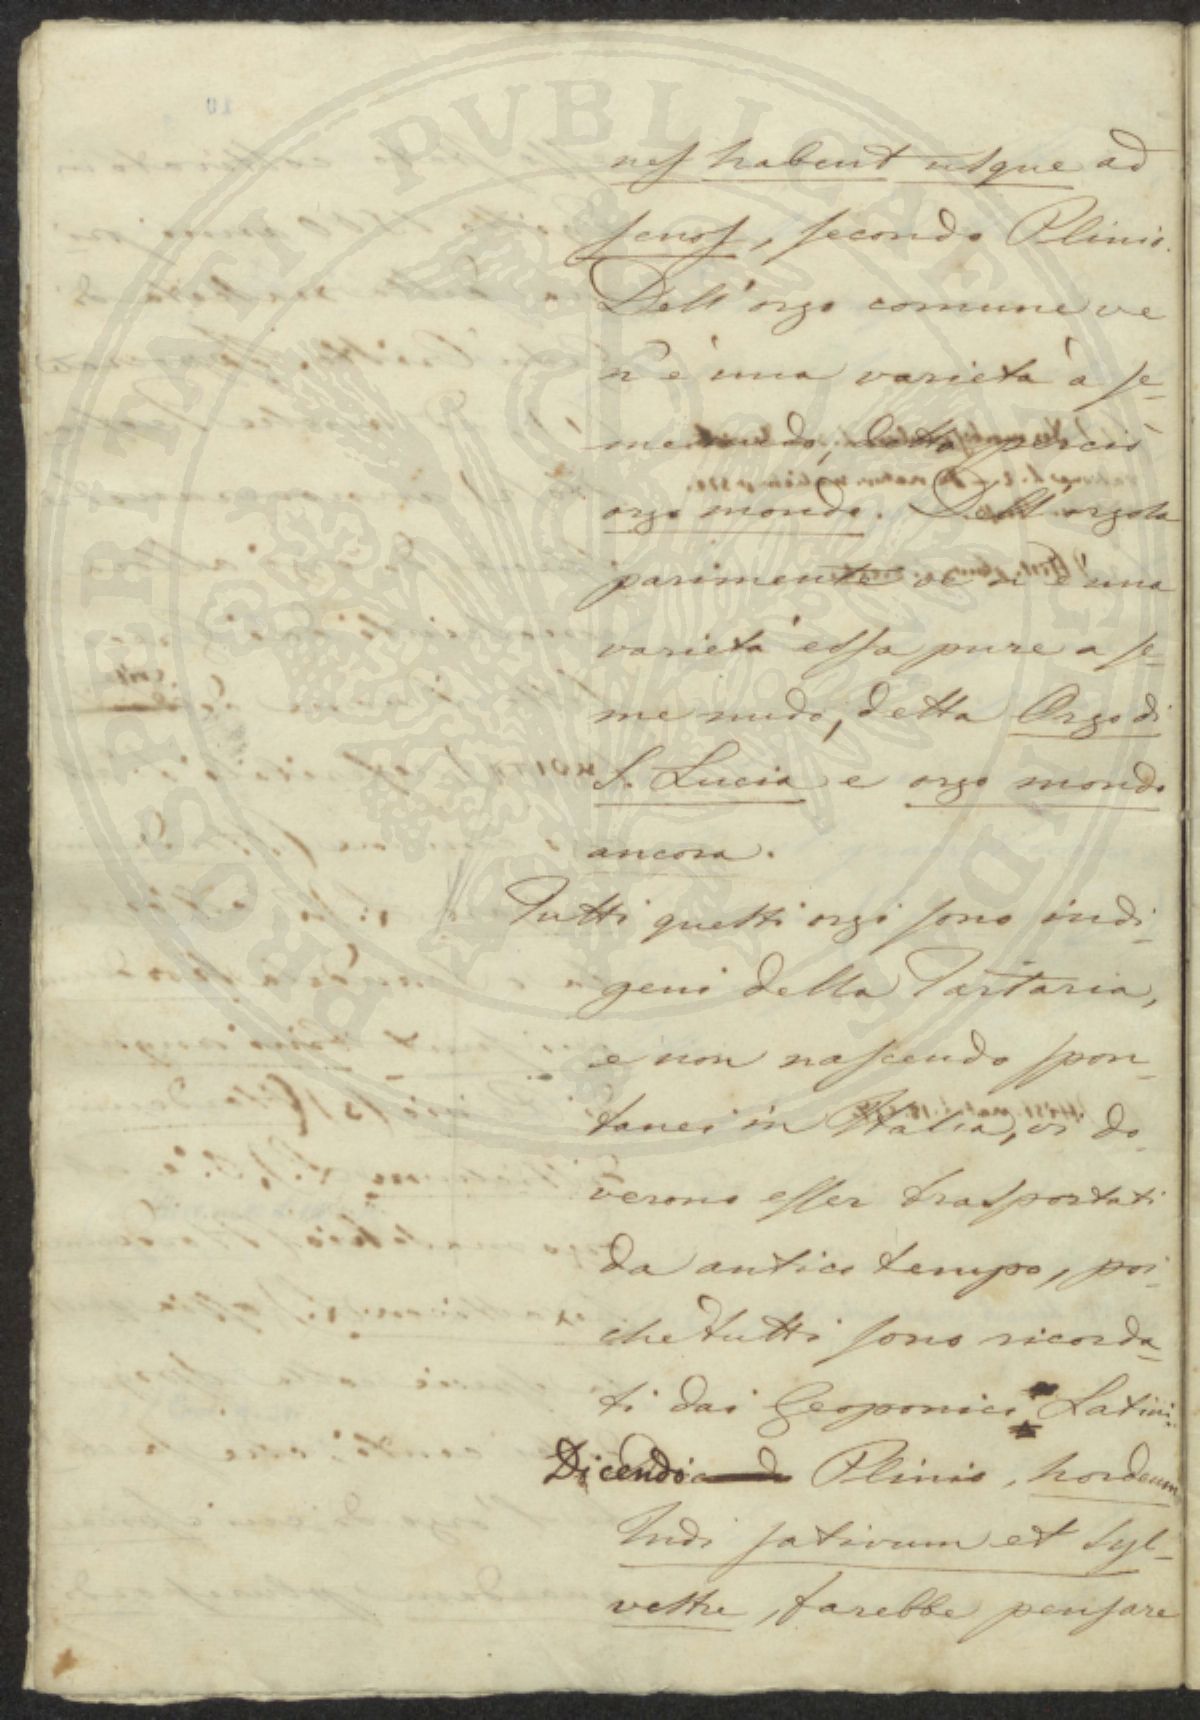 nes habent usque ad
senos, secondo Plinio.
Dell'orzo comune ve
n'è una varietà a se-
me nudo, detta perciò
orzo mondo. Dell'orzola
parimente ve n'è una
varietà essa pure a se-
me nudo, detta Orzo di
S. Lucia e orzo mondo
ancora.
Tutti questi orzi sono indi-
geni della Tartaria,
e non nascendo spon-
tanei in Italia, vi do-
verono esser trasportati
da antico tempo, poi-
che tutti sono ricorda-
ti dai Geoponici Latini.
Dicendo Plinio, hordeum
Indi sativum et syl-
vestre, farebbe pensare
PROSPERITATI PUBLICAE AUGENDAE